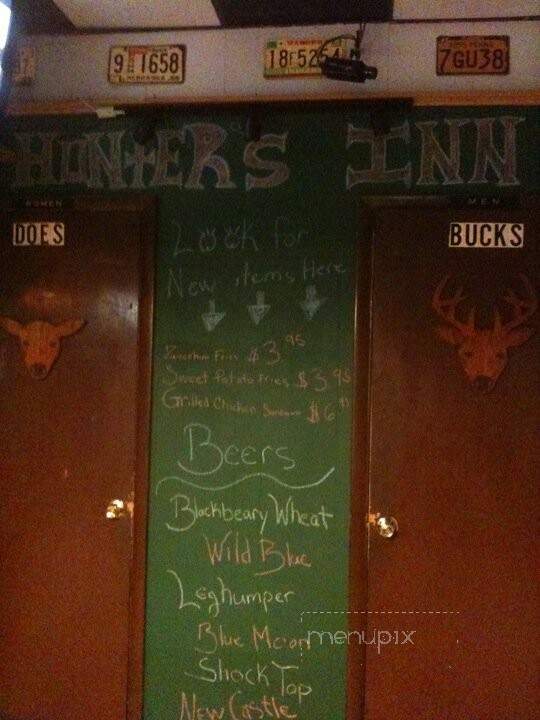 9 1658
7GU38
HUNTERS INN
WOMEN
MEN
DOES
BUCKS
Look for
New items Here
Fries $3.95
Sweet Potato Fries $3.95
Grilled Chicken $6
Beers
Blackbeary Wheat
Wild Blue
Leghumper
Blue Moon
Shock Top
New Castle
menupix